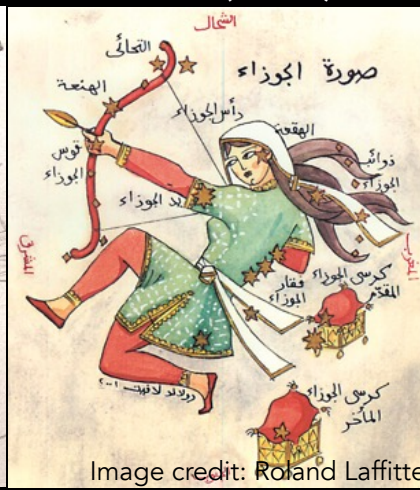 الشمال
صورة الجوزاء
التحائي
الهنعة
رأس الجوزاء
الهقعة
ذوائب
الجوزاء
قوس
الجوزاء
يد الجوزاء
المشرق
المغرب
فقار
الجوزاء
كرسي الجوزاء
المقدّم
كرسي الجوزاء
المأخر
Image credit: Roland Laffitte